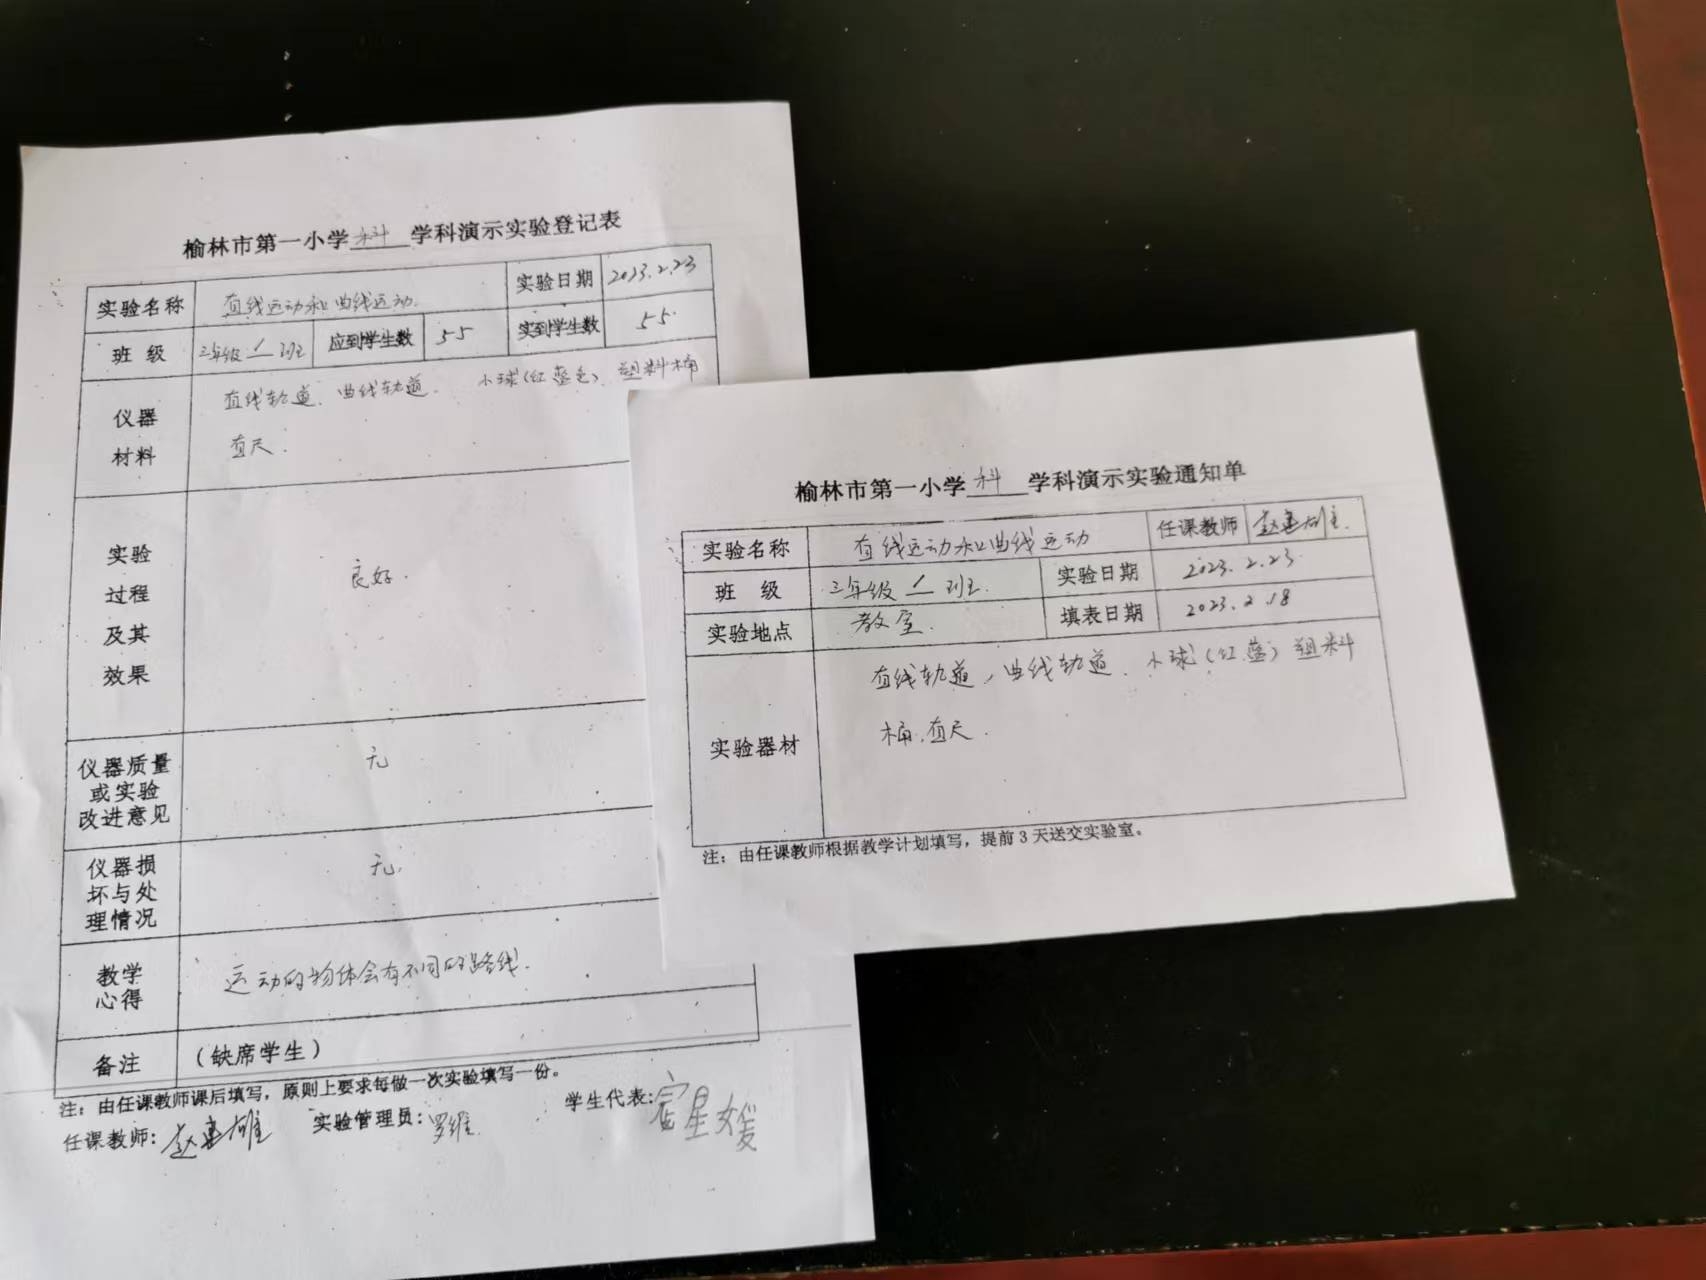 榆林市第一小学 科 学科演示实验登记表
实验名称 直线运动和曲线运动. 实验日期 2023.2.23
班 级 三年级 1 班 应到学生数 55 实到学生数 55.
仪器
材料
直线轨道、曲线轨道. 小球(红蓝色) 塑料桶
直尺.
实验
过程
及其
效果
良好.
仪器质量
或实验
改进意见
无
仪器损
坏与处
理情况
无.
教学
心得
运动的物体会有不同的路线.
备注 (缺席学生)
注: 由任课教师课后填写, 原则上要求每做一次实验填写一份。
任课教师: 赵惠雄 实验管理员: 罗维 学生代表: 星媛
榆林市第一小学 科 学科演示实验通知单
实验名称 直线运动和曲线运动 任课教师 赵惠雄.
班 级 三年级 1 班. 实验日期 2023.2.23.
实验地点 教室. 填表日期 2023.2.18
实验器材
直线轨道, 曲线轨道. 小球(红.蓝) 塑料
桶.直尺.
注: 由任课教师根据教学计划填写, 提前3天送交实验室。